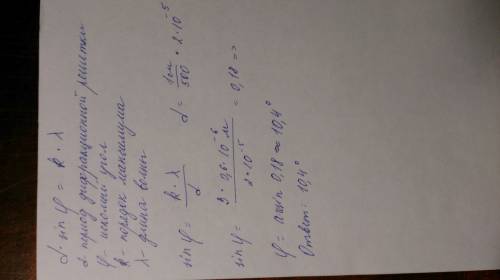 d · sin φ = k · λ
d - период дифракционной решетки
φ - искомый угол
k - порядок максимума
λ - длина волны
sin φ = k · λ / d    d = 1 см / 500 = 2 · 10^-5
sin φ = 3 · 0,6 · 10^-6 м / 2 · 10^-5 = 0,18 =>
φ = arcsin 0,18 ≈ 10,4°
Ответ: 10,4°